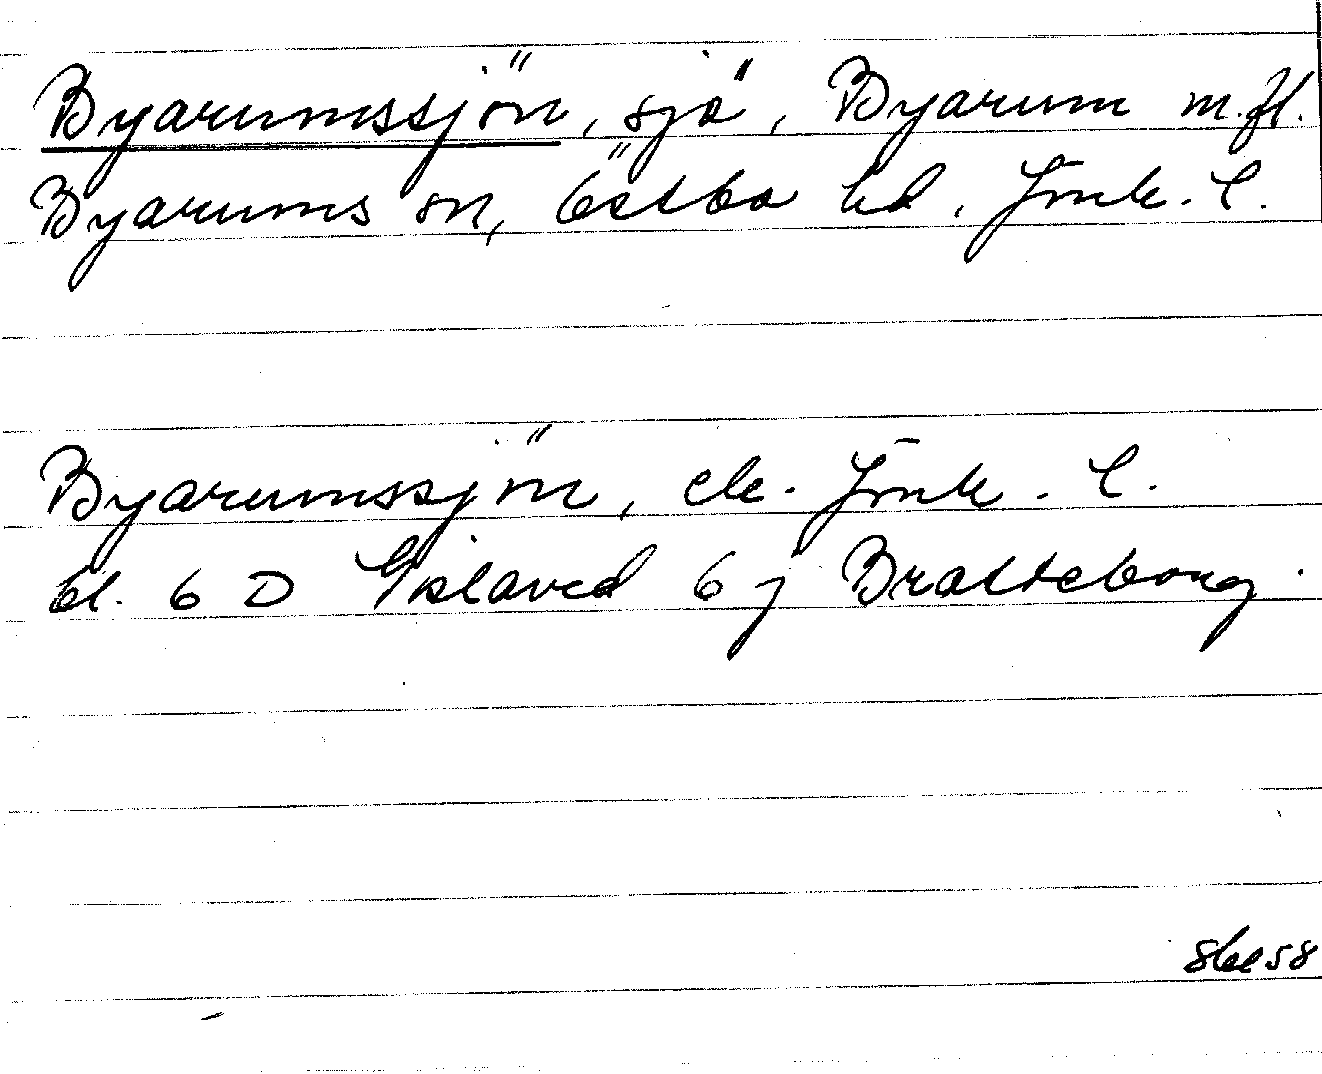 Byarumssjön, sjö, Byarum m.fl.
Byarums sn, Östbo hd. Jönk. l.
Byarumssjön, ek. Jönk. l.
bl. 6 D Gislaved 6 j Bratteborg.